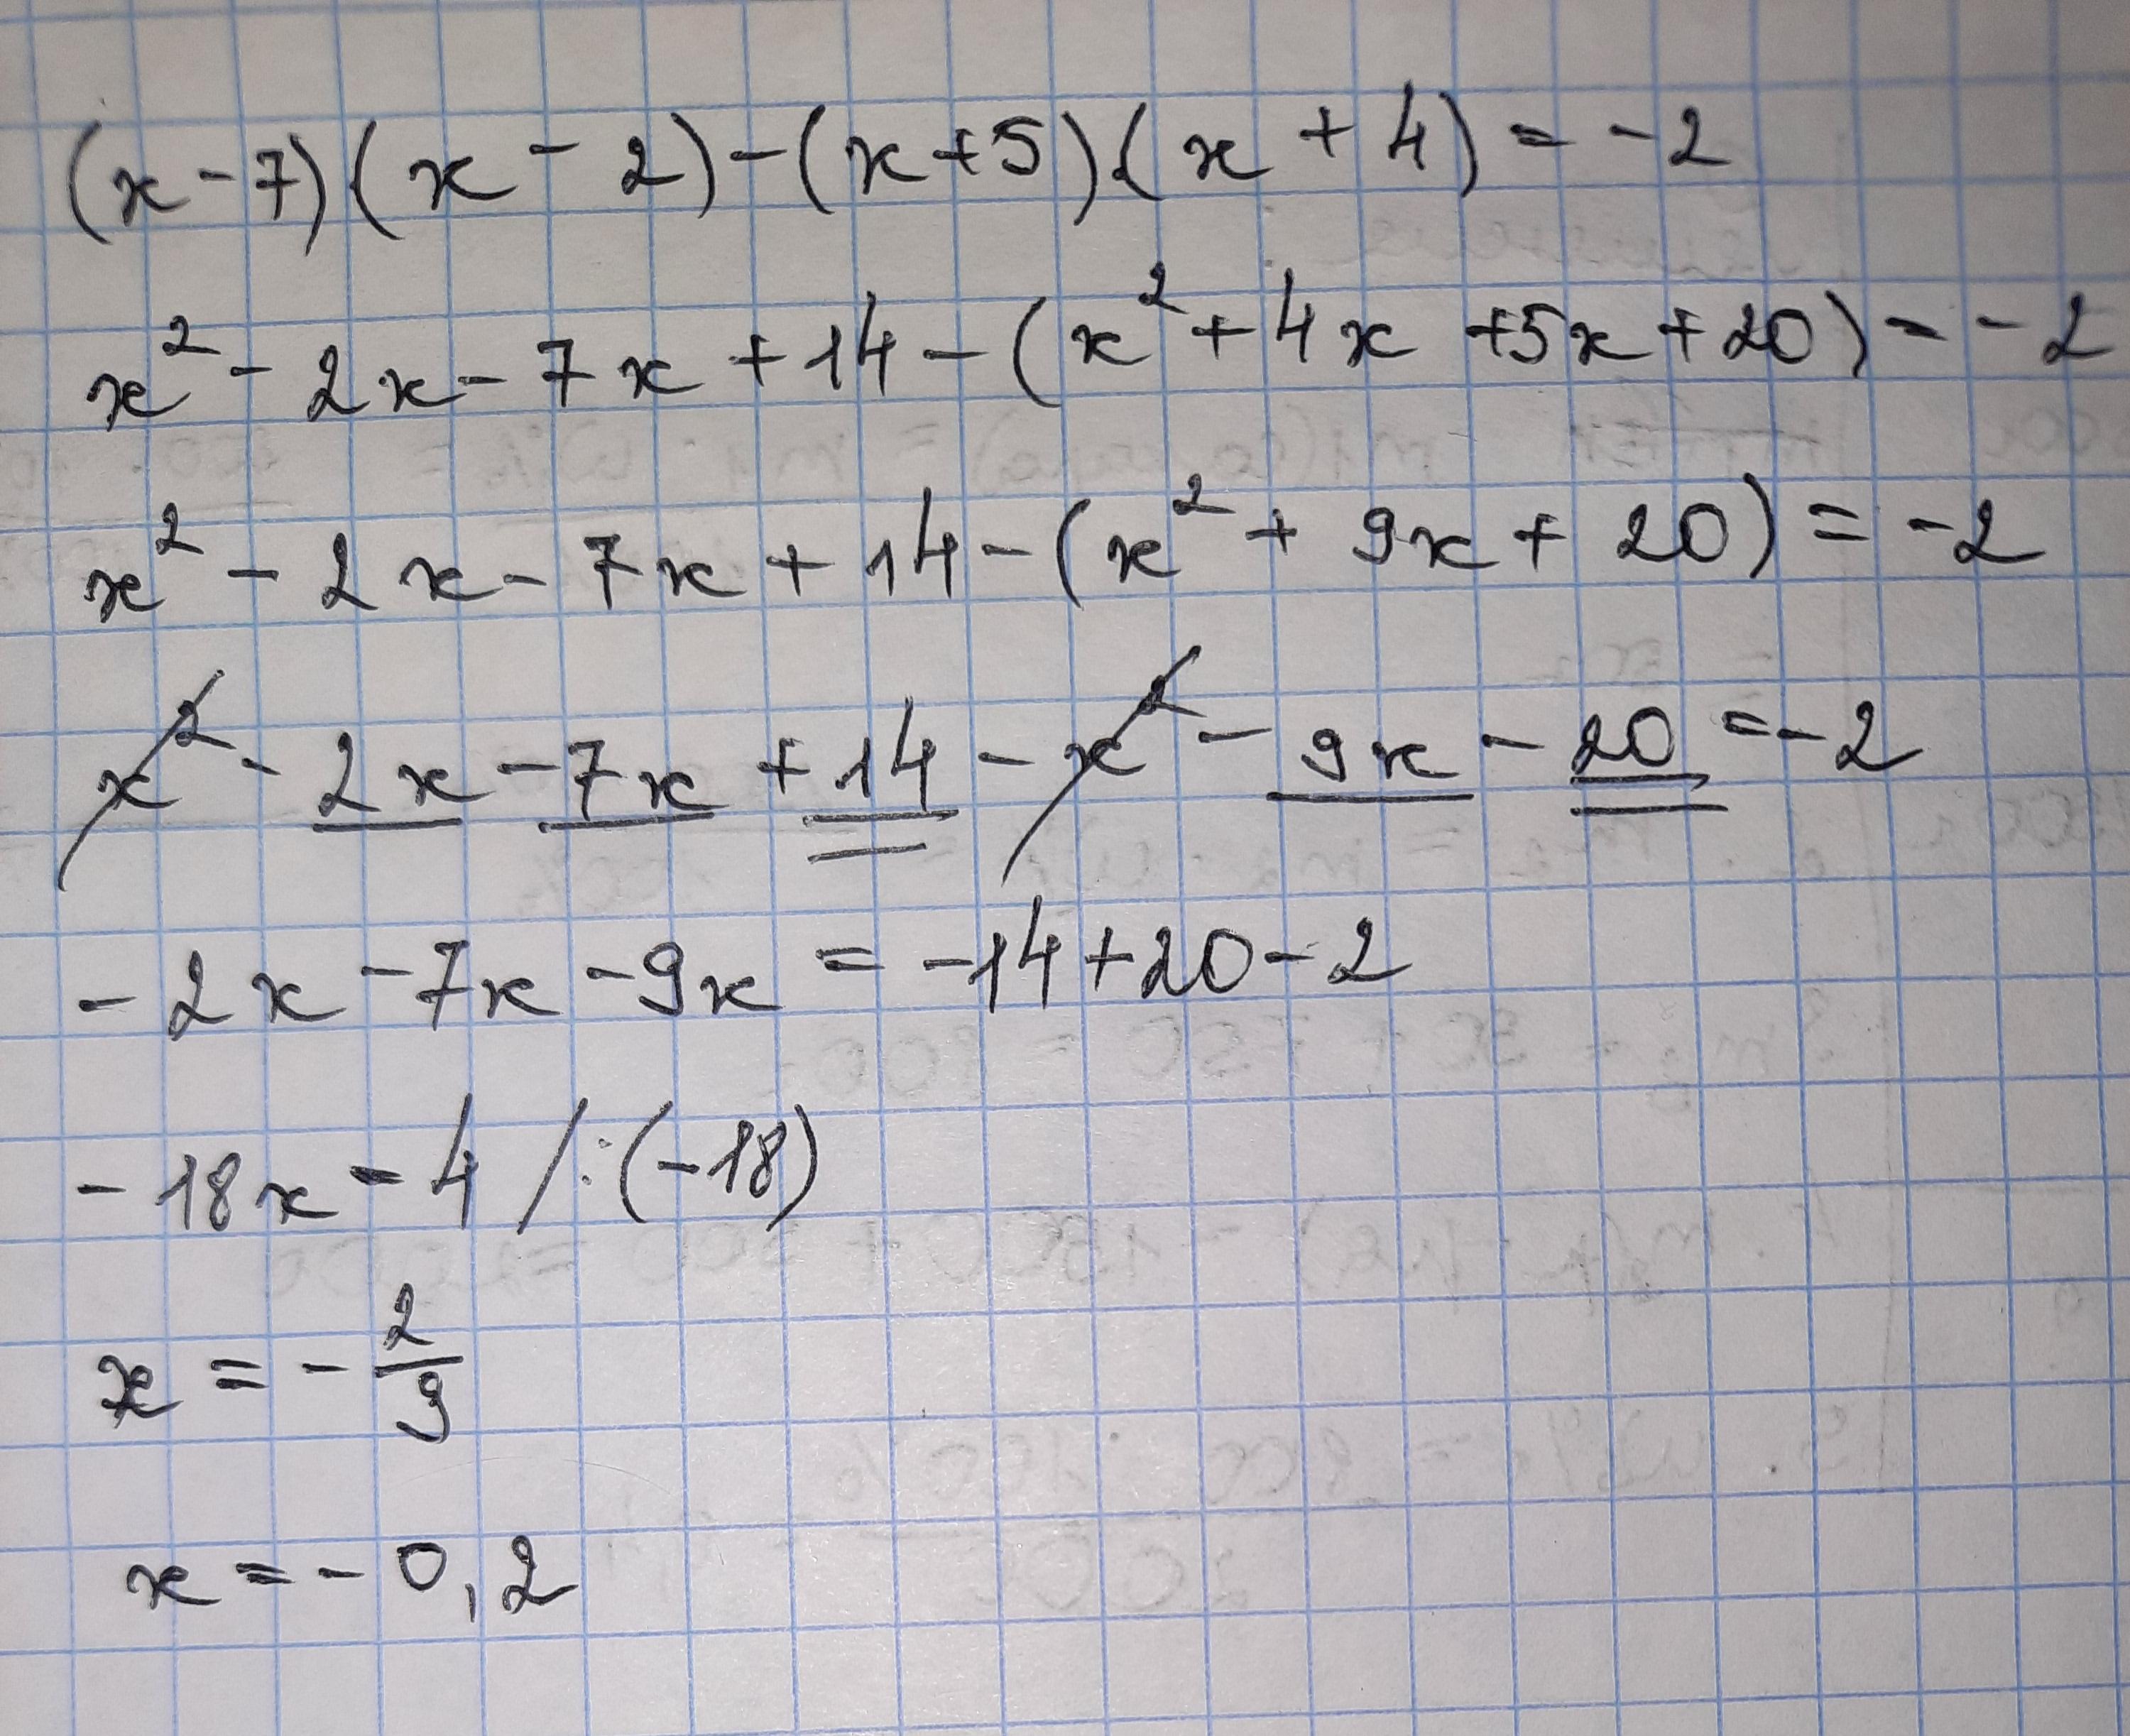 (x-7)(x-2)-(x+5)(x+4)=-2
x²-2x-7x+14-(x²+4x+5x+20)=-2
x²-2x-7x+14-(x²+9x+20)=-2
x²-2x-7x+14-x²-9x-20=-2
-2x-7x-9x=-14+20-2
-18x=4/:(-18)
x=-2/9
x=-0,2